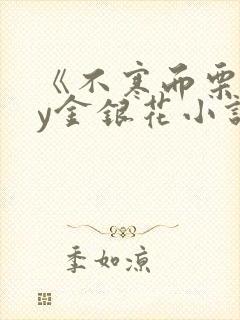 《不寒而栗
y金银花小说
季如凉